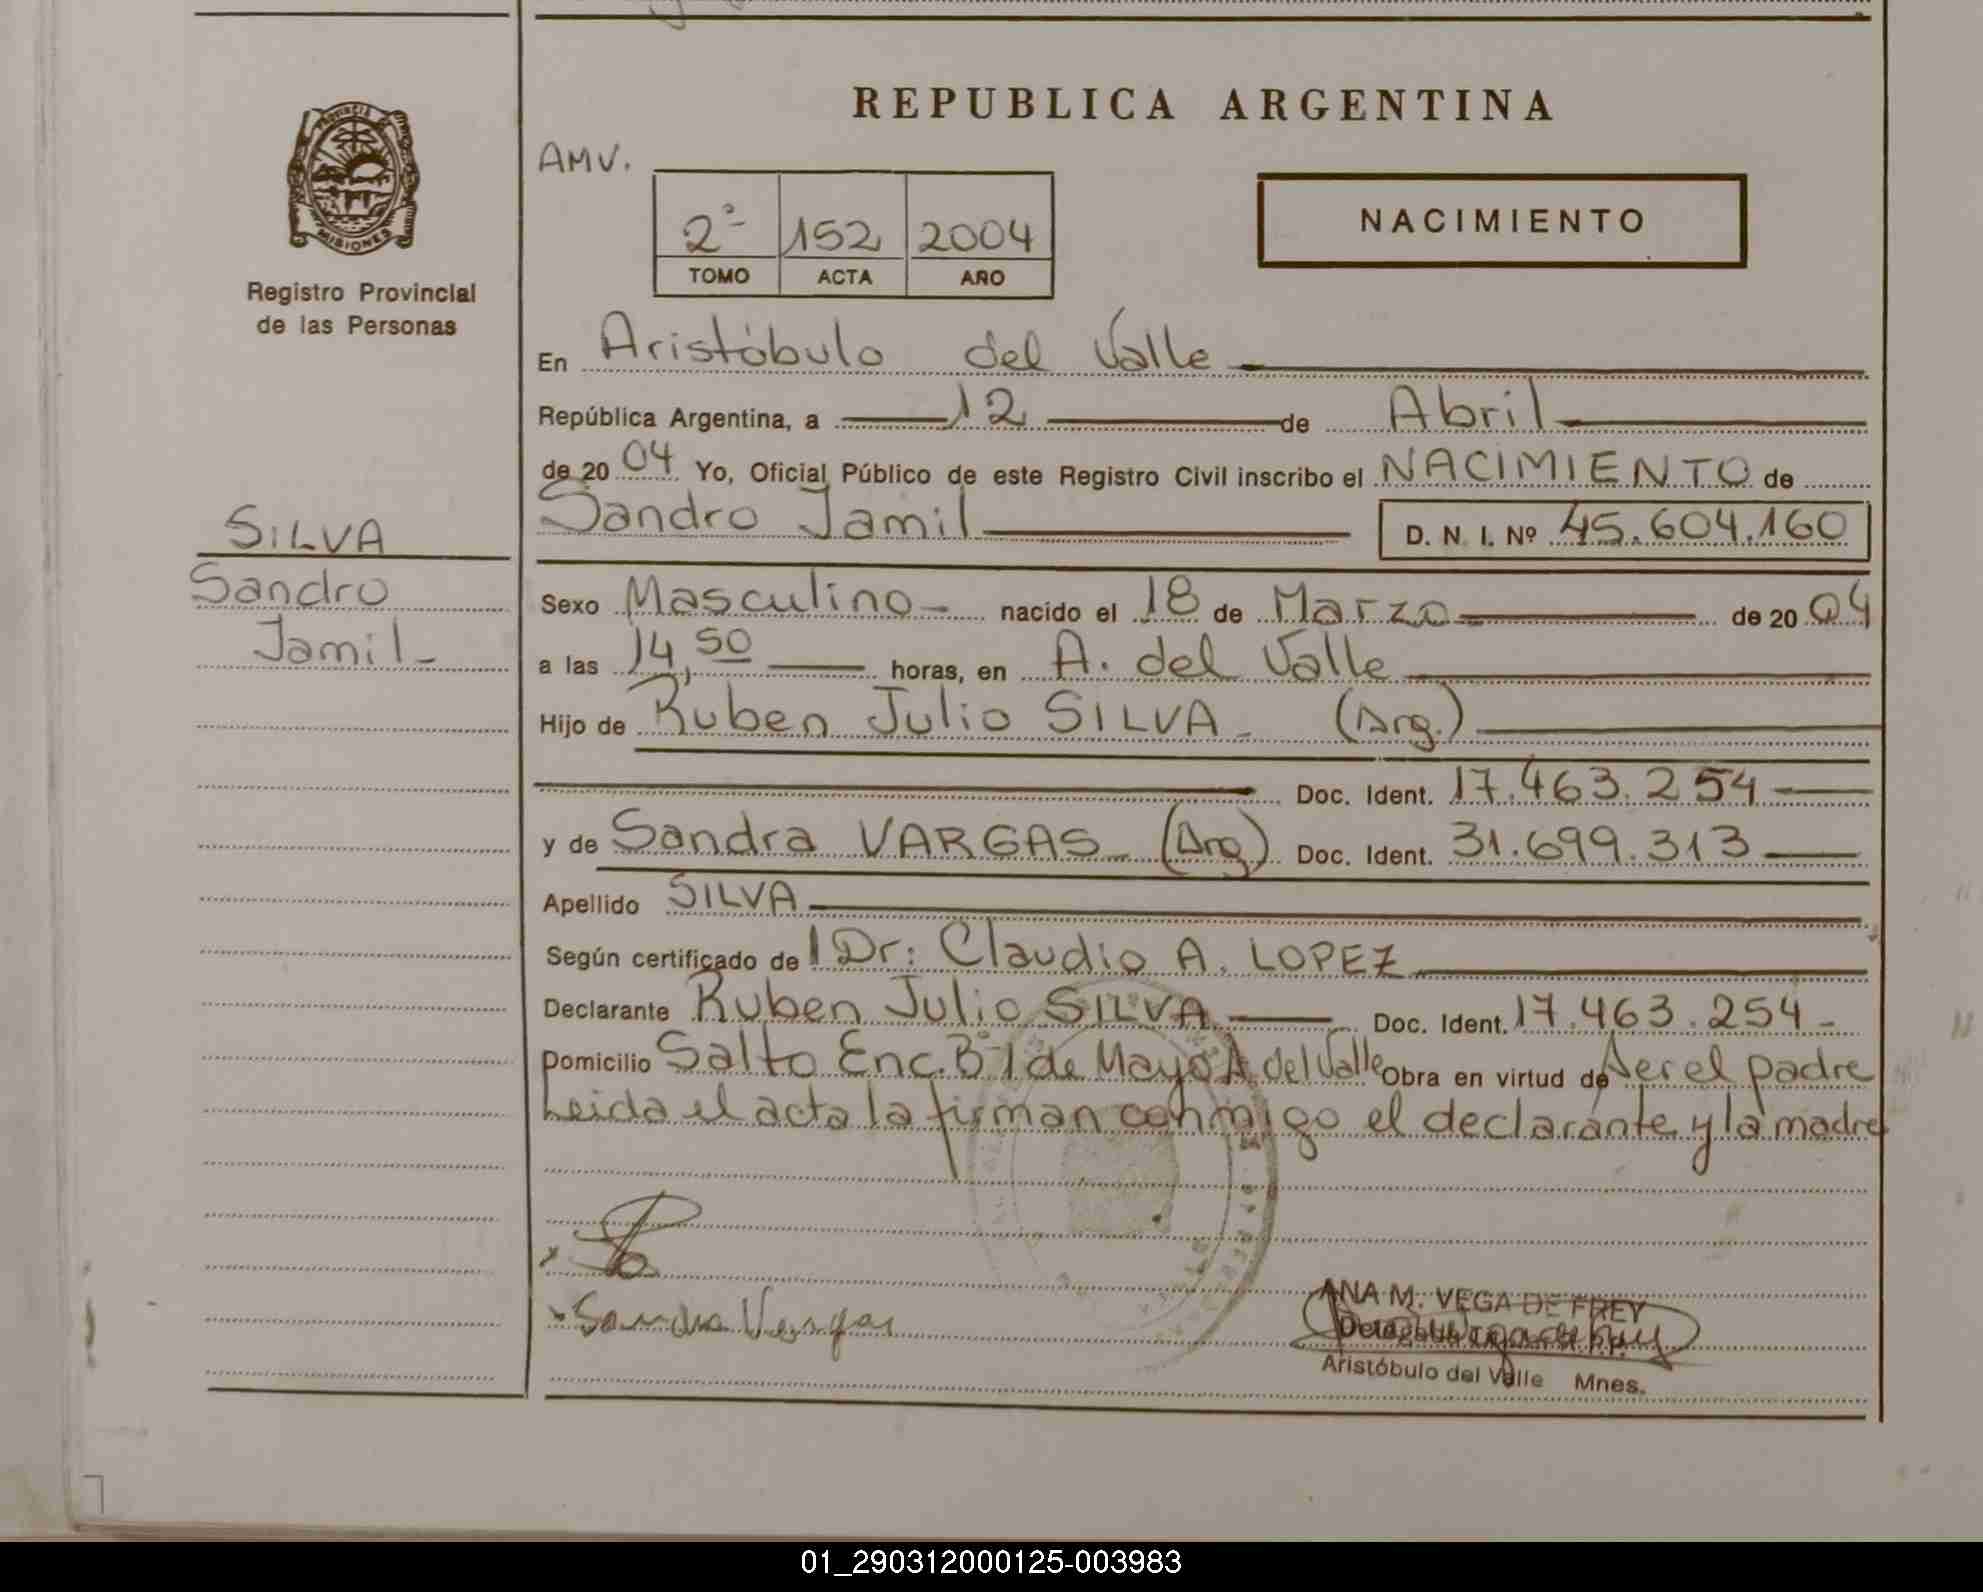 REPUBLICA ARGENTINA
PROVINCIA DE
MISIONES
Registro Provincial
de las Personas
AMV.
2º 152 2004
TOMO ACTA AÑO
NACIMIENTO
En Aristóbulo del Valle
República Argentina, a 12 de Abril
de 20 04 Yo, Oficial Público de este Registro Civil inscribo el NACIMIENTO de
Sandro Jamil D. N. I. Nº 45.604.160
SILVA
Sandro
Jamil
Sexo Masculino nacido el 18 de Marzo de 20 04
a las 14,50 horas, en A. del Valle
Hijo de Ruben Julio SILVA (Arg.)
Doc. Ident. 17.463.254
y de Sandra VARGAS (Arg) Doc. Ident. 31.699.313
Apellido SILVA
Según certificado de Dr: Claudio A. LOPEZ
Declarante Ruben Julio SILVA Doc. Ident. 17.463.254
Domicilio Salto Enc. Bº 1 de Mayo A. del Valle Obra en virtud de ser el padre
Leida el acta la firman conmigo el declarante y la madre
x
x Sandra Vargas
ANA M. VEGA DE FREY
Aristóbulo del Valle Mnes.
01_290312000125-003983